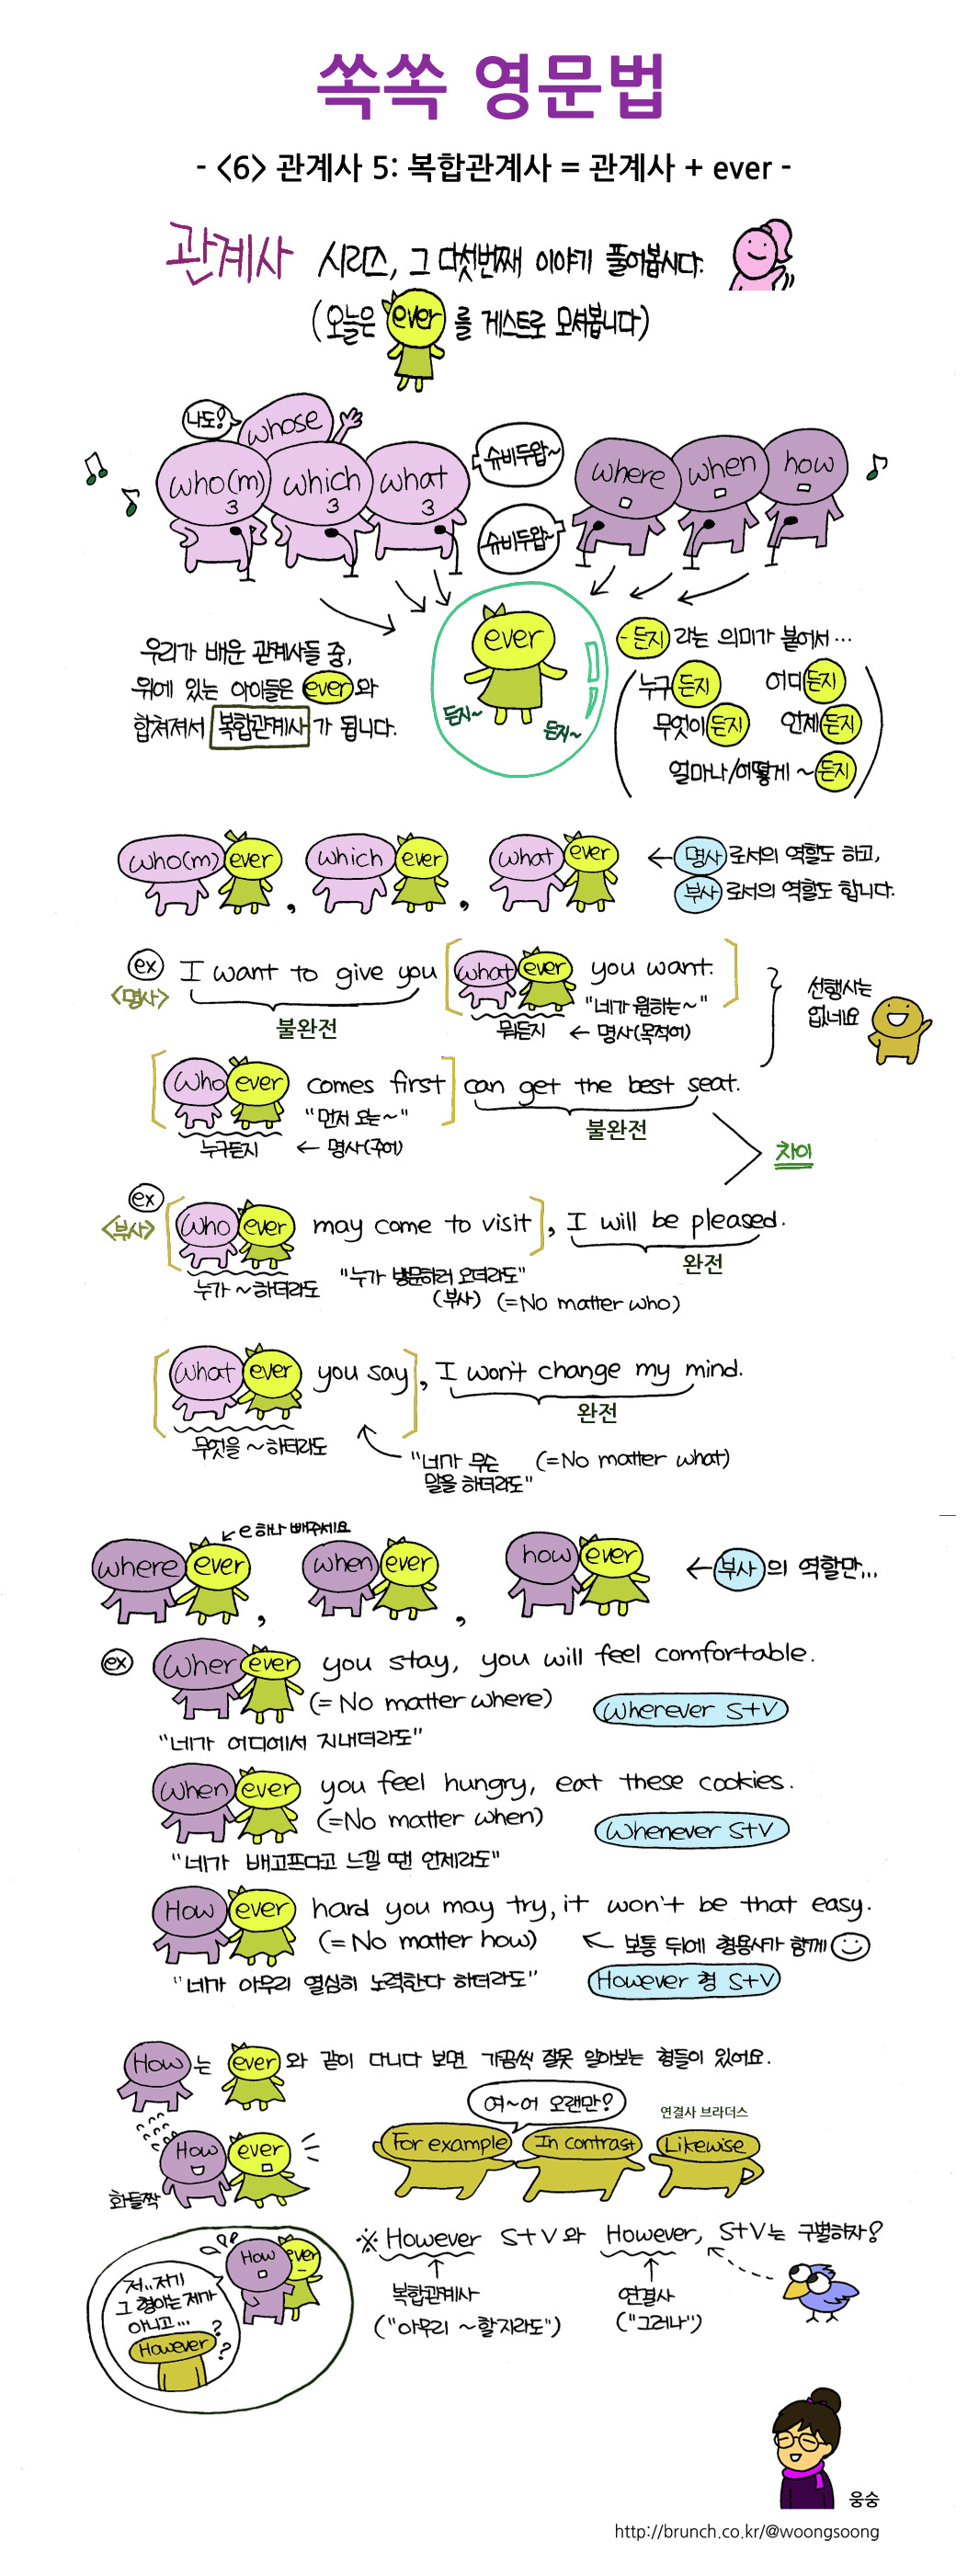 쏙쏙 영문법
- <6> 관계사 5: 복합관계사 = 관계사 + ever -
관계사 시리즈, 그 다섯번째 이야기 풀어봅시다.
(오늘은 ever 를 게스트로 모셔봅니다)
나도! whose
who(m) which what 슈비두왑~ where when how
슈비두왑~
우리가 배운 관계사들 중,
위에 있는 아이들은 ever 와
합쳐져서 복합관계사 가 됩니다.
ever
든지~ 든지~
-든지 라는 의미가 붙어서...
누구든지 어디든지
무엇이든지 언제든지
얼마나/어떻게 ~ 든지
who(m) ever, which ever, what ever ← 명사 로서의 역할도 하고,
부사 로서의 역할도 합니다.
ex <명사> I want to give you [what ever you want.]
불완전
"네가 원하는~"
뭐든지 ← 명사(목적어)
선행사는
없네요
[Who ever comes first] can get the best seat.
"먼저 오는~" 불완전
누구든지 ← 명사(주어)
차이
ex <부사> [Who ever may come to visit], I will be pleased.
완전
누가 ~하더라도 "누가 방문하러 오더라도"
(부사) (=No matter who)
[What ever you say], I won't change my mind.
완전
무엇을 ~하더라도
"네가 무슨 (=No matter what)
말을 하더라도"
e하나 빼주세요
where ever, when ever, how ever ← 부사 의 역할만...
ex Wher ever you stay, you will feel comfortable.
(= No matter where) Wherever S+V
"네가 어디에서 지내더라도"
When ever you feel hungry, eat these cookies.
(=No matter when) Whenever S+V
"네가 배고프다고 느낄 땐 언제라도"
How ever hard you may try, it won't be that easy.
(= No matter how) ← 보통 뒤에 형용사가 함께
"네가 아무리 열심히 노력한다 하더라도" However 형 S+V
How 는 ever 와 같이 다니다 보면 가끔씩 잘못 알아보는 형들이 있어요.
여~어 오랜만? 연결사 브라더스
How ever For example In contrast Likewise
화들짝
※ However S+V 와 However, S+V는 구별하자!
복합관계사 연결사
("아무리 ~할지라도") ("그러나")
How ever
저..저기
그 형아는 제가
아니고...
However ? ?
웅숭
http://brunch.co.kr/@woongsoong